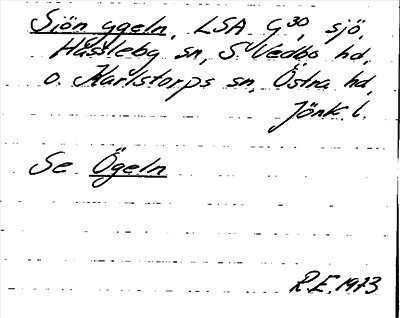 Sjön ygeln, LSA G30, sjö,
Hässleby sn, S Vedbo hd,
o. Karlstorps sn, Östra hd,
Jönk. l.
Se Ögeln
R.E. 1973